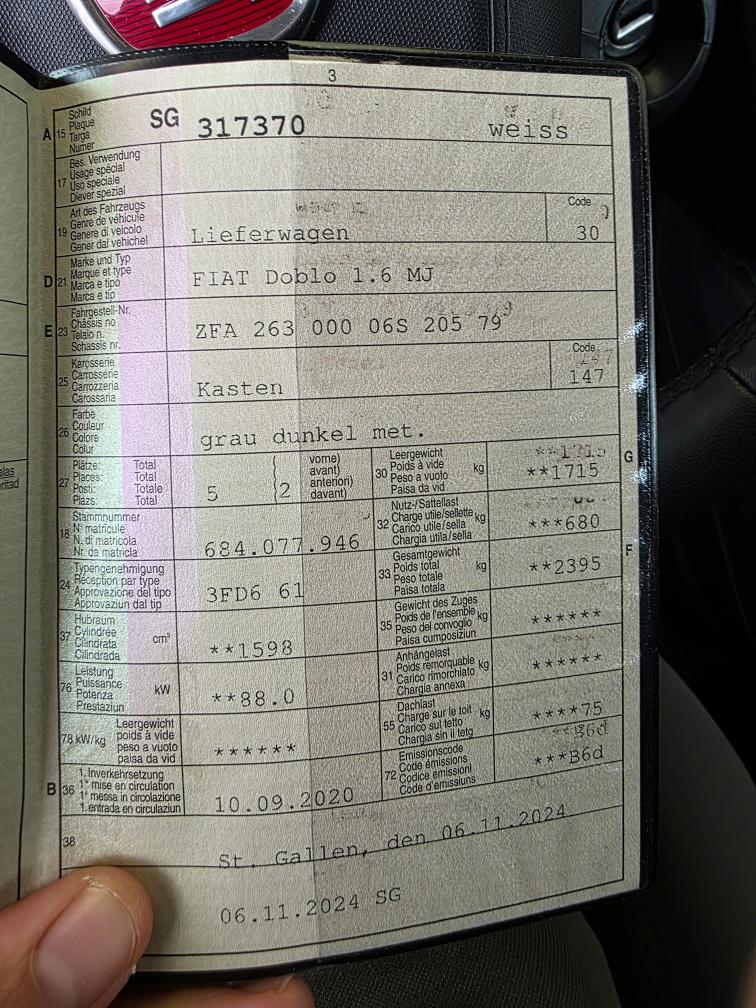 3
A 15 Schild Plaque Targa Numer SG 317370 weiss
17 Bes. Verwendung Usage spécial Uso speciale Diever spezial
19 Art des Fahrzeugs Genre de véhicule Genere di veicolo Gener dal vehichel Lieferwagen Code 30
D 21 Marke und Typ Marque et type Marca e tipo Marca e tip FIAT Doblo 1.6 MJ
E 23 Fahrgestell-Nr. Châssis no Telaio n. Schassis nr. ZFA 263 000 06S 205 79
25 Karosserie Carrosserie Carrozzeria Carossaria Kasten Code 147
26 Farbe Couleur Colore Colur grau dunkel met.
27 Plätze: Total Places: Total Posti: Totale Plazs: Total 5 2 vorne) avant) anteriori) davant)
30 Leergewicht Poids à vide Peso a vuoto Paisa da vid kg **1715
G
18 Stammnummer N° matricule N. di matricola Nr. da matricla 684.077.946
32 Nutz-/Sattellast Charge utile/sellette Carico utile/sella Chargia utila/sella kg ***680
24 Typengenehmigung Réception par type Approvazione del tipo Approvaziun dal tip 3FD6 61
33 Gesamtgewicht Poids total Peso totale Paisa totala kg **2395
F
37 Hubraum Cylindrée Cilindrata Cilindrada cm³ **1598
35 Gewicht des Zuges Poids de l'ensemble Peso del convoglio Paisa cumposiziun kg ******
76 Leistung Puissance Potenza Prestaziun kW **88.0
31 Anhängelast Poids remorquable Carico rimorchiato Chargia annexa kg ******
78 kW/kg Leergewicht poids à vide peso a vuoto paisa da vid ******
55 Dachlast Charge sur le toit Carico sul tetto Chargia sin il tetg kg ****75
B 36 1. Inverkehrsetzung 1re mise en circulation 1a messa in circolazione 1. entrada en circulaziun 10.09.2020
72 Emissionscode Code émissions Codice emissioni Code d'emissiuns ***B6d
38
St. Gallen, den 06.11.2024
06.11.2024 SG